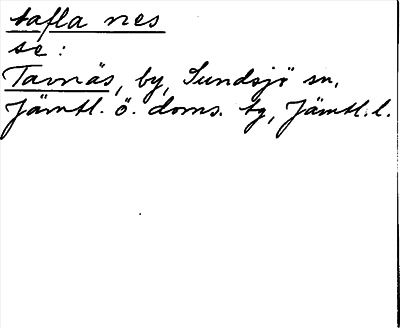 tafla nes
se:
Tavnäs, by, Sundsjö sn,
Jämtl. ö. doms. tg, Jämtl. l.